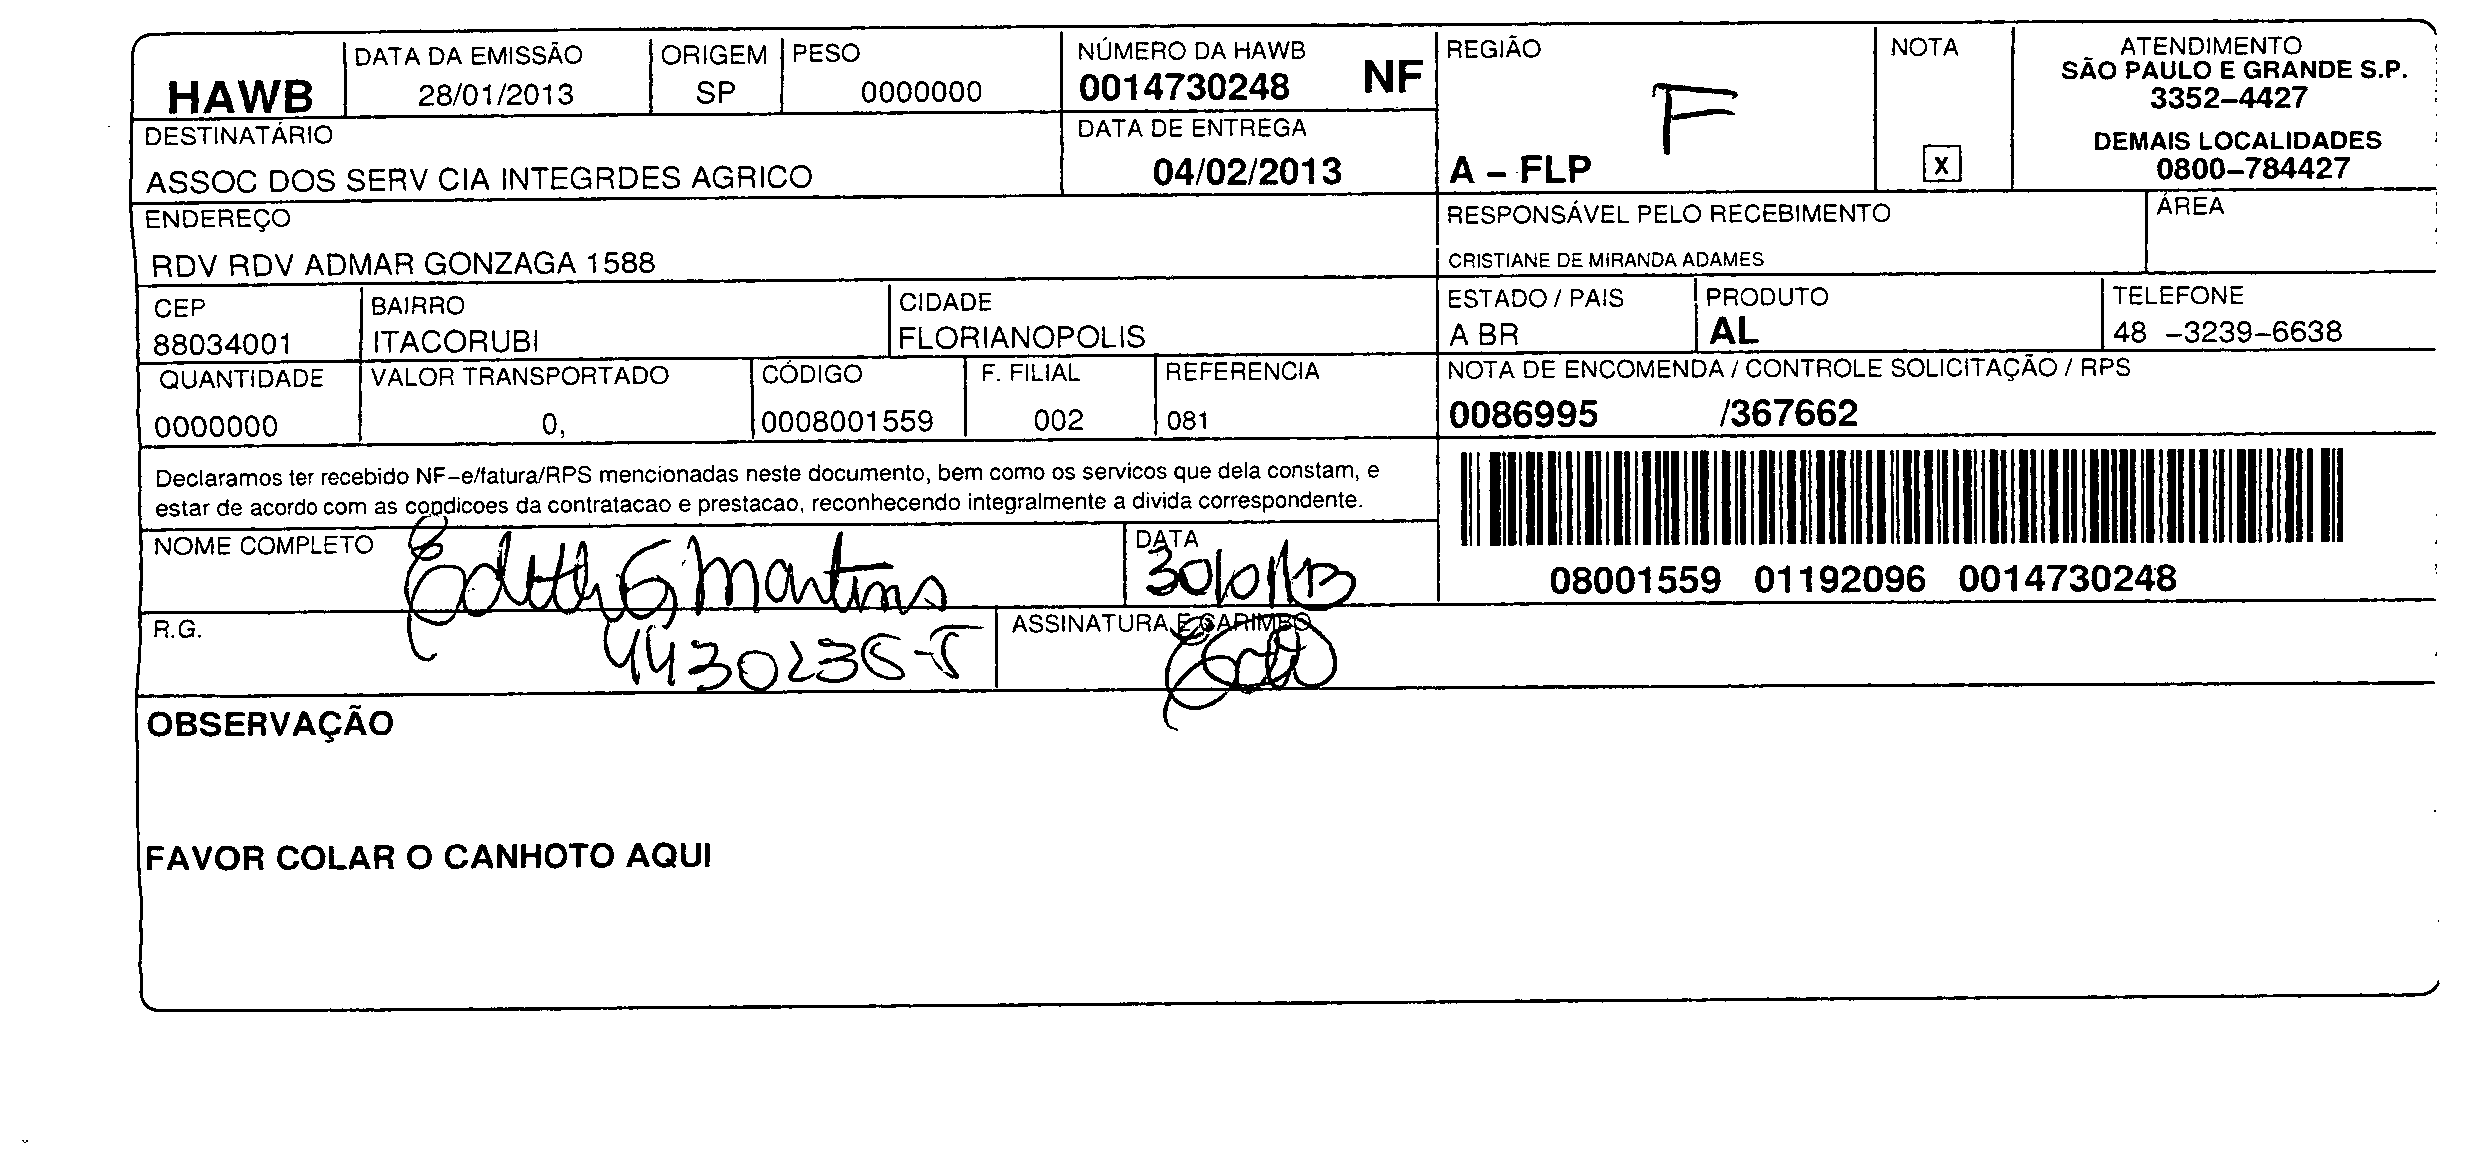 HAWB
DATA DA EMISSÃO
28/01/2013
ORIGEM
SP
PESO
0000000
NÚMERO DA HAWB
0014730248 NF
REGIÃO
F
A – FLP
NOTA
X
ATENDIMENTO
SÃO PAULO E GRANDE S.P.
3352–4427
DEMAIS LOCALIDADES
0800–784427
DESTINATÁRIO
ASSOC DOS SERV CIA INTEGRDES AGRICO
DATA DE ENTREGA
04/02/2013
ENDEREÇO
RDV RDV ADMAR GONZAGA 1588
RESPONSÁVEL PELO RECEBIMENTO
CRISTIANE DE MIRANDA ADAMES
ÁREA
CEP
88034001
BAIRRO
ITACORUBI
CIDADE
FLORIANOPOLIS
ESTADO / PAIS
A BR
PRODUTO
AL
TELEFONE
48 –3239–6638
QUANTIDADE
0000000
VALOR TRANSPORTADO
0,
CÓDIGO
0008001559
F. FILIAL
002
REFERENCIA
081
NOTA DE ENCOMENDA / CONTROLE SOLICITAÇÃO / RPS
0086995 /367662
Declaramos ter recebido NF–e/fatura/RPS mencionadas neste documento, bem como os servicos que dela constam, e
estar de acordo com as condicoes da contratacao e prestacao, reconhecendo integralmente a divida correspondente.
08001559 01192096 0014730248
NOME COMPLETO
Edith G Martins
DATA
30/01/13
R.G.
4430236-5
ASSINATURA E CARIMBO
OBSERVAÇÃO
FAVOR COLAR O CANHOTO AQUI